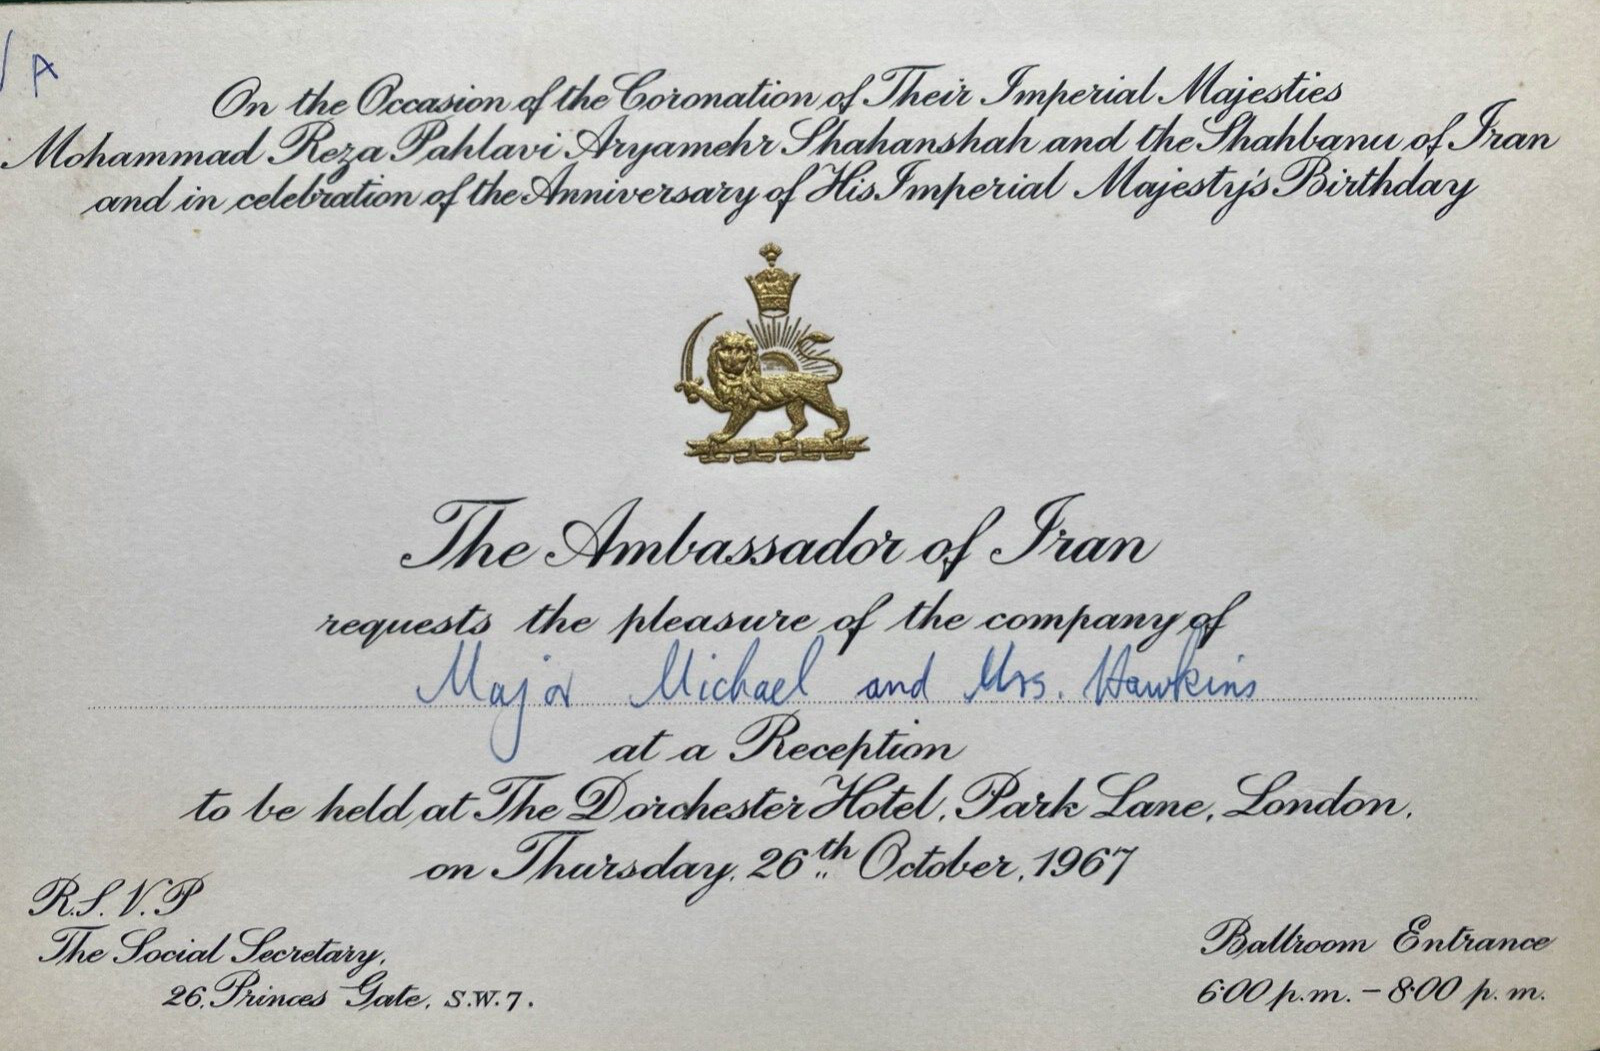 A
On the Occasion of the Coronation of Their Imperial Majesties
Mohammad Reza Pahlavi Aryamehr Shahanshah and the Shahbanu of Iran
and in celebration of the Anniversary of His Imperial Majesty's Birthday
The Ambassador of Iran
requests the pleasure of the company of
Major Michael and Mrs. Hawkins
at a Reception
to be held at The Dorchester Hotel, Park Lane, London,
on Thursday, 26th October, 1967
R.S.V.P
The Social Secretary,
26, Princes Gate, S.W.7.
Ballroom Entrance
6:00 p.m. – 8:00 p.m.